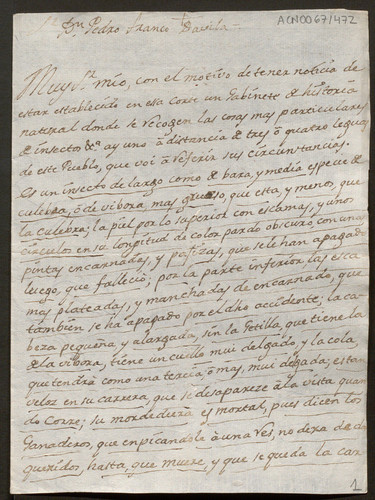 ACN0067/472
Sr. Dn. Pedro Franco Davila
Muy Sr. mio, con el motivo de tener noticia de
estar establecido en esa Corte un Gabinete de historia
natural donde se recogen las cosas mas particulares
de insectos &a ay uno à distancia de tres ò quatro leguas
de este Pueblo, que voi à referir sus circunstancias.
Es un insecto de largo como de bara, y media especie de
culebra, ò de vibora mas grueso, que esta, y menos, que
la culebra; la piel por lo superior con escamas, y unos
circulos en su longitud de color pardo obscuro con unas
pintas encarnadas, y pajizas, que se le han apagado
luego, que falleciò; por la parte inferior las esca
mas plateadas, y manchadas de encarnado, que
tambien se ha apagado por el dho accidente; la ca-
beza pequeña, y alargada, sin la getilla, que tiene la
de la vibora, tiene un cuello mui delgado, y la cola,
que tendrà como una tercia ò mas, mui delgada; es tan
veloz en su carrera, que se desaparece à la vista quan
do corre; su mordedura es mortal, pues dicen los
Ganaderos, que en picandole à una res, no dexa de dar
queridos, hasta, que muere, y que se queda la car
1